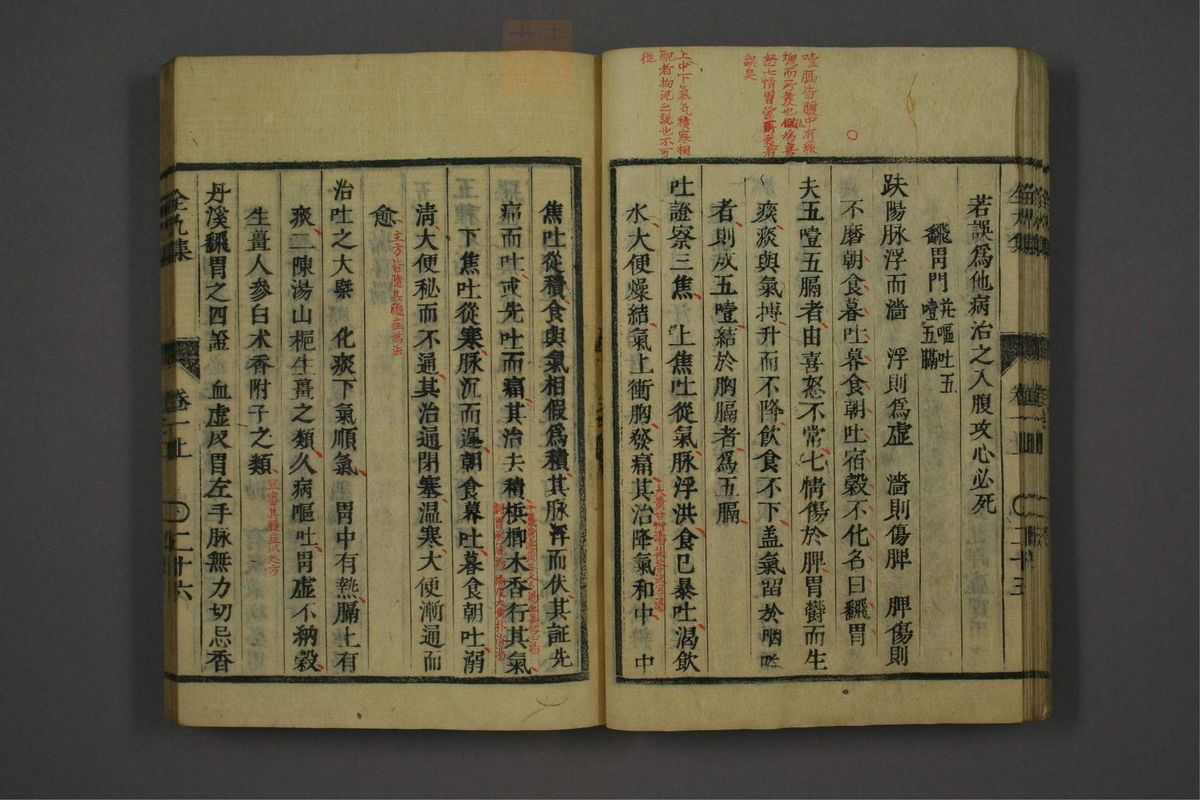 噎膈皆腹中有
塊而所憂也
怒七情胃
誤矣
上中下氣气積寒相
配者拘泥之説也不可
從
若誤爲他病治之入腹攻心必死
飜胃門 並嘔吐五
噎五膈
趺陽脉浮而濇 浮則爲虚 濇則傷脾 脾傷則
不磨朝食暮吐暮食朝吐宿穀不化名曰飜胃
夫五噎五膈者由喜怒不常七情傷於脾胃欝而生
痰痰與氣搏升而不降飲食不下盖氣留於咽嗌
者則成五噎結於胸膈者爲五膈
吐證察三焦 上焦吐從氣脉浮洪食已暴吐渇飲
水大便燥結氣上衝胸發痛其治降氣和中 中
全九集 卷一上 二十三
焦吐從積食與氣相假爲積其脉浮而伏其証先
痛而吐或先吐而痛其治去積梹榔木香行其氣
下焦吐從寒脉沉而遲朝食暮吐暮食朝吐溺
清大便秘而不通其治通閉塞温寒大便漸通而
愈
主方皆隨其腹症為法
治吐之大槩 化痰下氣順氣 胃中有熱膈上有
痰二陳湯山梔生薑之類久病嘔吐胃虚不納穀
生薑人參白术香附子之類
宜審其腹症以処方
丹溪飜胃之四證 血虚反胃左手脉無力切忌香
全九集 卷一上 二十六